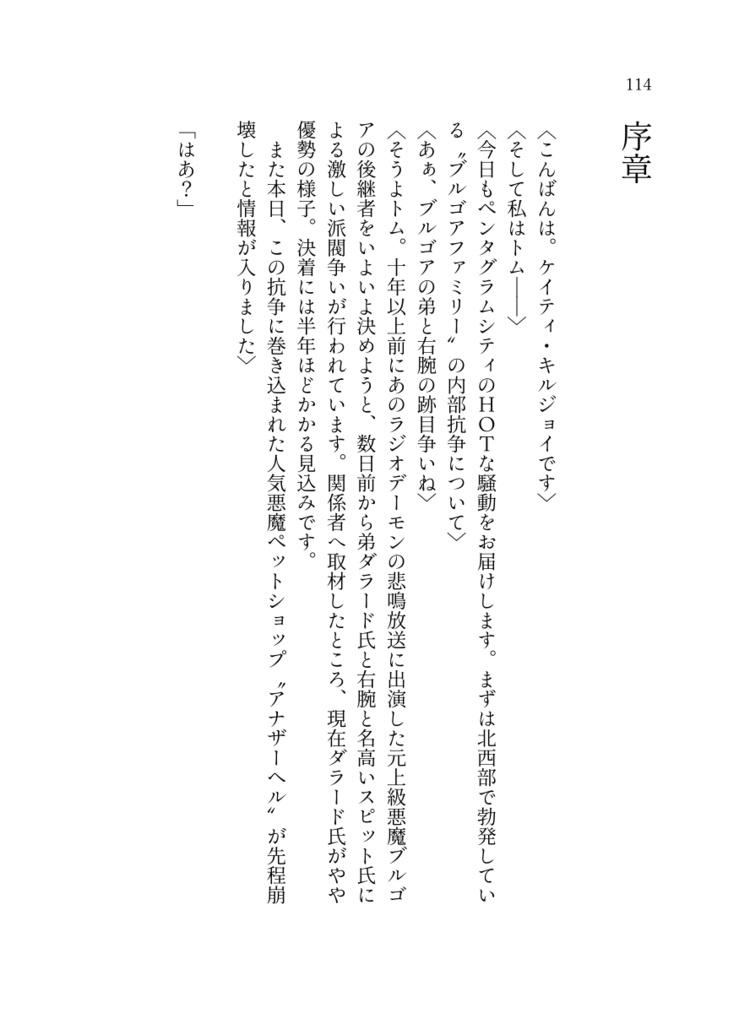 114
序章
〈こんばんは。ケイティ・キルジョイです〉
〈そして私はトム――〉
〈今日もペンタグラムシティのＨＯＴな騒動をお届けします。まずは北西部で勃発してい
る〝ブルゴアファミリー〟の内部抗争について〉
〈あぁ、ブルゴアの弟と右腕の跡目争いね〉
〈そうよトム。十年以上前にあのラジオデーモンの悲鳴放送に出演した元上級悪魔ブルゴ
アの後継者をいよいよ決めようと、数日前から弟ダラード氏と右腕と名高いスピット氏に
よる激しい派閥争いが行われています。関係者へ取材したところ、現在ダラード氏がやや
優勢の様子。決着には半年ほどかかる見込みです。
　また本日、この抗争に巻き込まれた人気悪魔ペットショップ〝アナザーヘル〟が先程崩
壊したと情報が入りました〉
「はあ？」